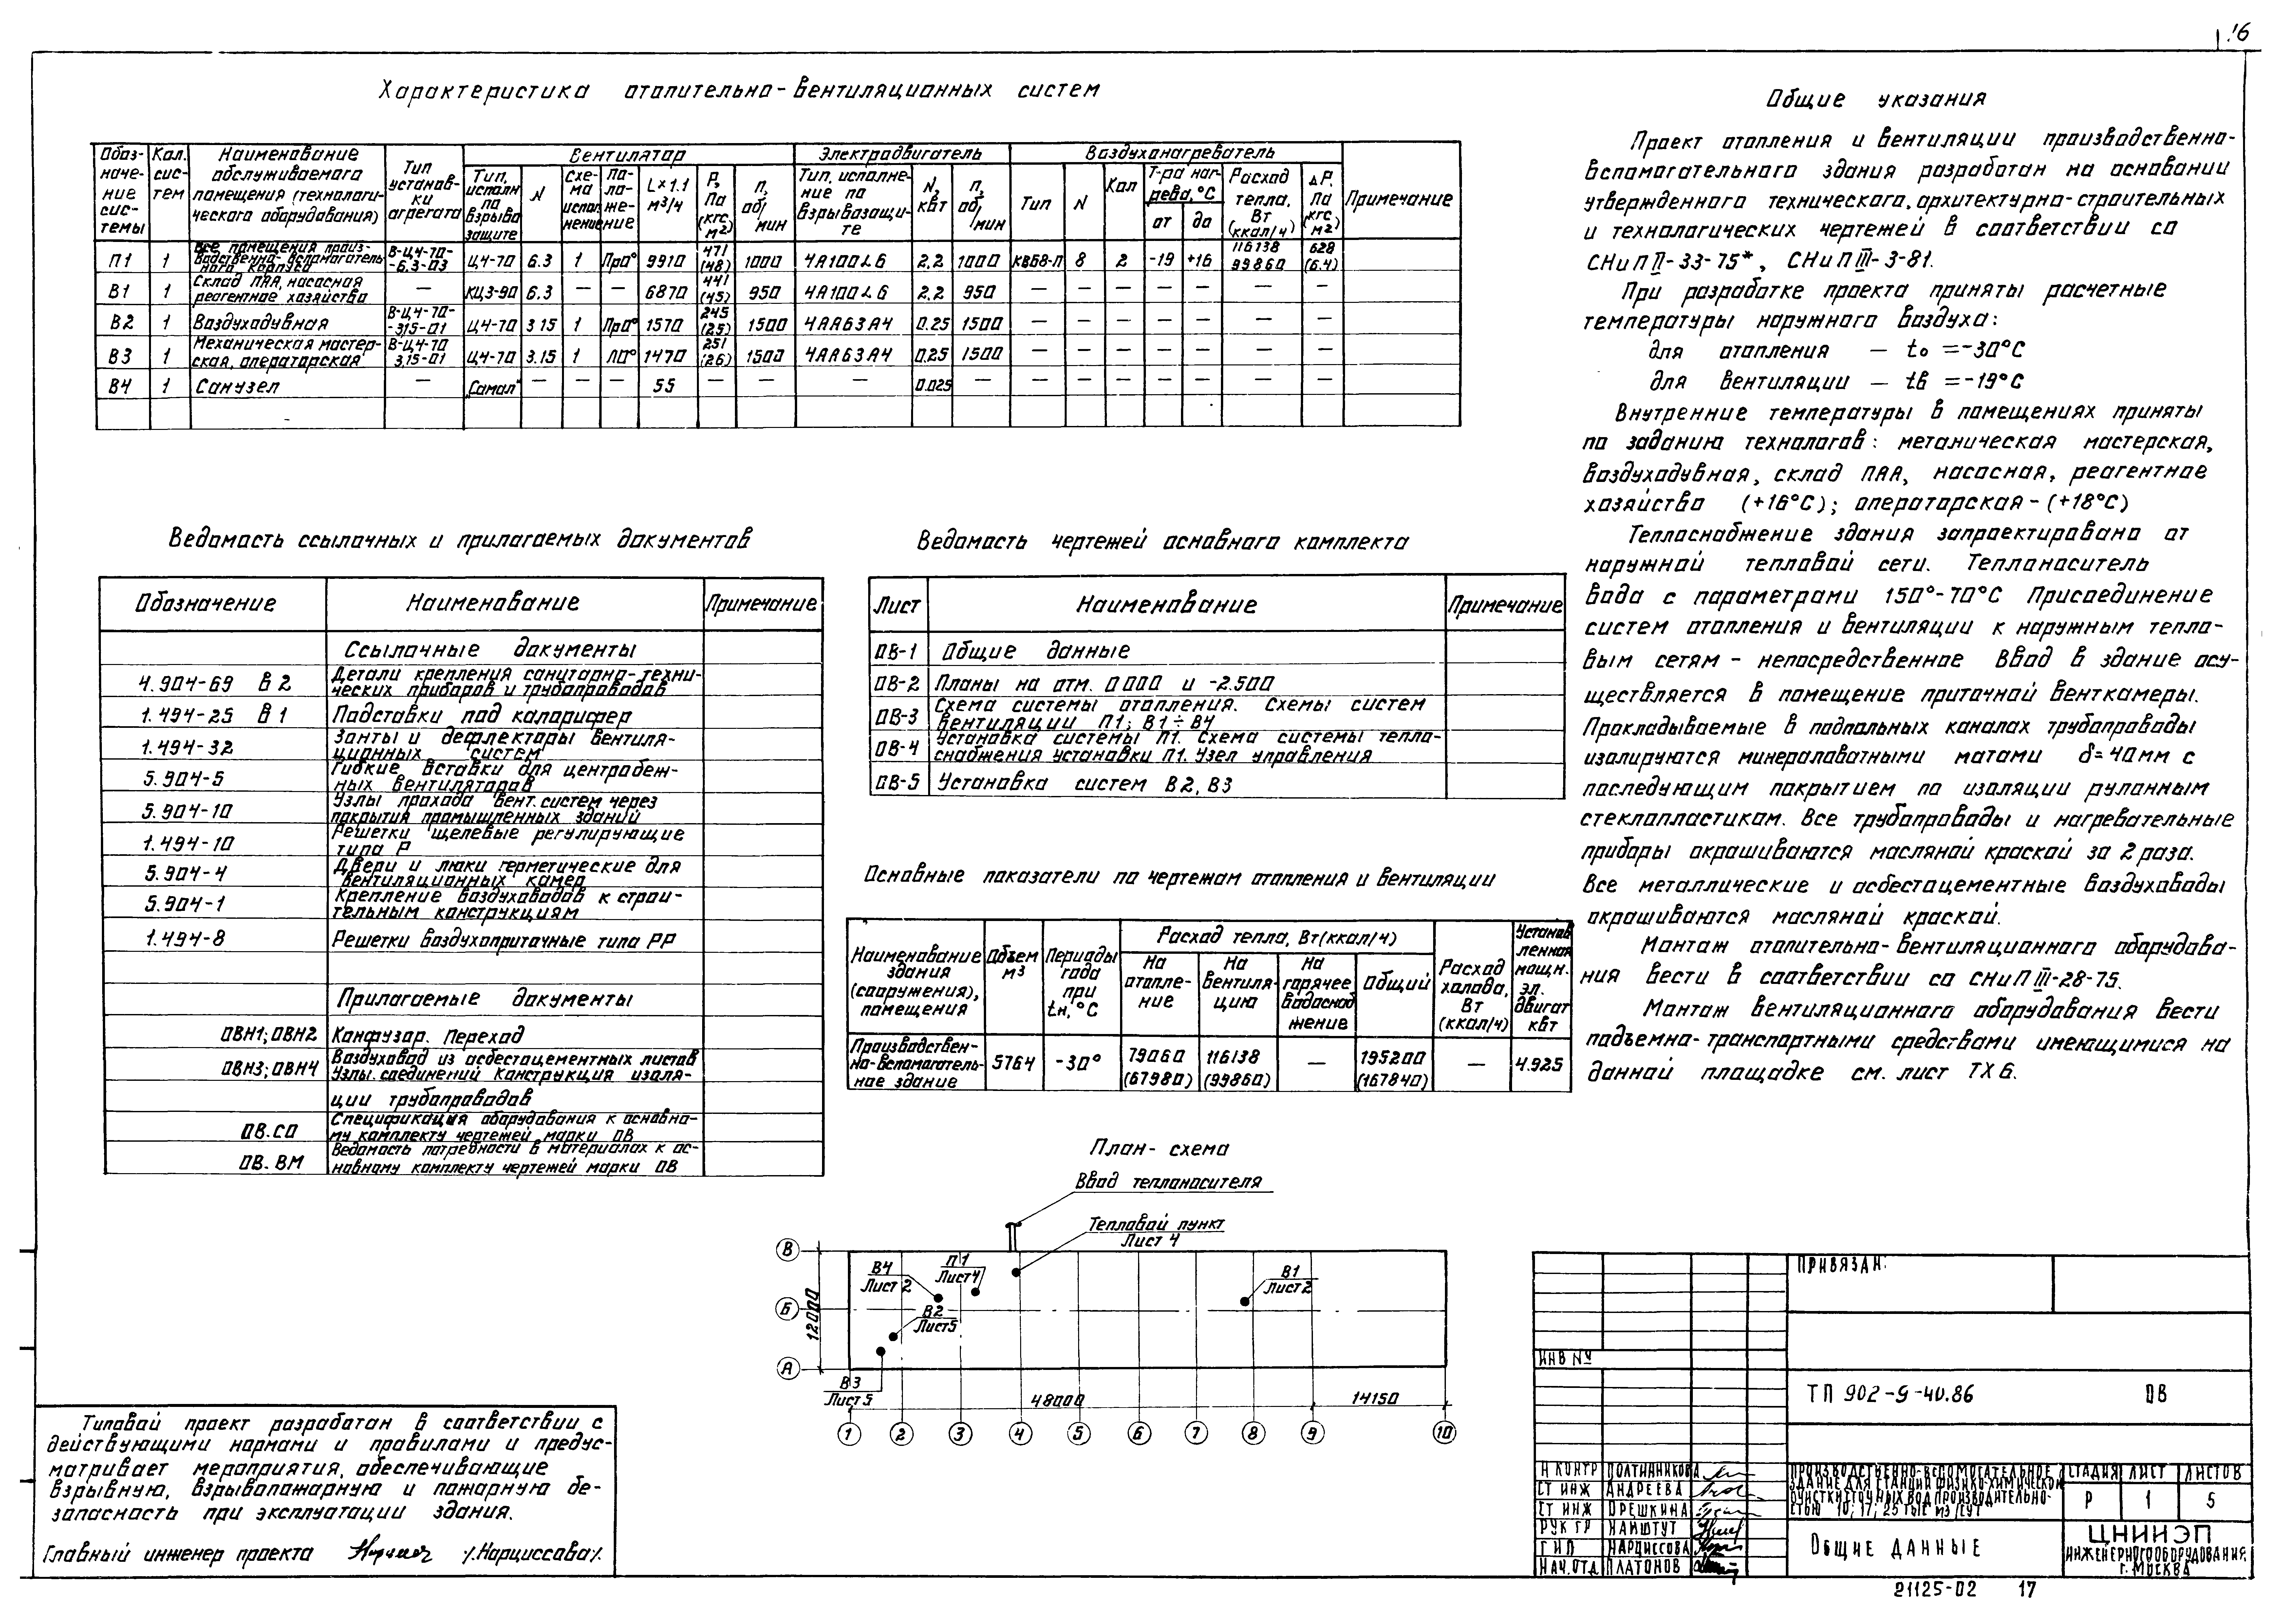 16
Характеристика отопительно-вентиляционных систем
Обоз-
наче-
ние
сис-
темы
Кол.
сис-
тем
Наименование
обслуживаемого
помещения (технологи-
ческого оборудования)
Тип
установ-
ки
агрегата
Вентилятор
Тип,
исполн
по
взрыво
защите
N
Схе-
ма
испол
нение
По-
ло-
же-
ние
L×1.1
м³/ч
Р,
Па
(кгс
м²)
п,
об/
мин
Электродвигатель
Тип, исполне-
ние по
взрывозащи-
те
N,
кВт
п,
об/
мин
Воздухонагреватель
Тип
N
Кол
Т-ра наг-
рева, °С
от
до
Расход
тепла,
Вт
(ккал/ч)
ΔР,
Па
(кгс
м²)
Примечание
П1 1 Все помещения произ-
водственно-вспомогатель
ного корпуса
В-Ц4-70-
-6.3-03 Ц4-70 6.3 1 Пр0° 9910 471
(48) 1000 4А100L6 2.2 1000 КВБ8-П 8 2 -19 +16 116138
99860 628
(6.4)
В1 1 Склад ПАА, насосная
реагентное хозяйство — КЦ3-90 6.3 — — 6870 441
(45) 950 4А100L6 2.2 950 — — — — — — —
В2 1 Воздуходувная В-Ц4-70-
-315-01 Ц4-70 3.15 1 Пр0° 1570 245
(25) 1500 4АА63А4 0.25 1500 — — — — — — —
В3 1 Механическая мастер-
ская, операторская В-Ц4-70
3,15-01 Ц4-70 3.15 1 Л0° 1470 251
(26) 1500 4АА63А4 0.25 1500 — — — — — — —
В4 1 Санузел — „Самал" — — — 55 — — — 0.025 — — — — — — — —
Ведомость ссылочных и прилагаемых документов
Обозначение Наименование Примечание
Ссылочные документы
4.904-69 В2 Детали крепления санитарно-техни-
ческих приборов и трубопроводов
1.494-25 В1 Подставки под калорифер
1.494-32 Зонты и дефлекторы вентиля-
ционных систем
5.904-5 Гибкие вставки для центробеж-
ных вентиляторов
5.904-10 Узлы прохода вент. систем через
покрытия промышленных зданий
1.494-10 Решетки щелевые регулирующие
типа Р
5.904-4 Двери и люки герметические для
вентиляционных камер
5.904-1 Крепление воздуховодов к строи-
тельным конструкциям
1.494-8 Решетки воздухоприточные типа РР
Прилагаемые документы
ОВН1; ОВН2 Конфузор. Переход
ОВН3; ОВН4 Воздуховод из асбестоцементных листов
Узлы. соединений Конструкция изоля-
ции трубопроводов
ОВ.СО Спецификация оборудования к основно-
му комплекту чертежей марки ОВ
ОВ.ВМ Ведомость потребности в материалах к ос-
новному комплекту чертежей марки ОВ
Ведомость чертежей основного комплекта
Лист Наименование Примечание
ОВ-1 Общие данные
ОВ-2 Планы на отм. 0 000 и -2.500
ОВ-3 Схема системы отопления. Схемы систем
вентиляции П1; В1÷В4
ОВ-4 Установка системы П1. Схема системы тепло-
снабжения установки П1. Узел управления
ОВ-5 Установка систем В2, В3
Основные показатели по чертежам отопления и вентиляции
Наименование
здания
(сооружения),
помещения
Объем
м³
Периоды
года
при
tн, °С
Расход тепла, Вт(ккал/ч)
На
отопле-
ние
На
вентиля-
цию
На
горячее
водоснаб
жение
Общий
Расход
холода,
Вт
(ккал/ч)
Установ
ленная
мощн.
эл.
двигат
кВт
Производствен-
но-вспомогатель-
ное здание 5764 -30° 79060
(67980) 116138
(99860) — 195200
(167840) — 4.925
План-схема
Ввод теплоносителя
Тепловой пункт
Лист 4
В4
Лист 2
П1
Лист 4
В1
Лист 2
В2
Лист 5
В3
Лист 5
В
Б
А
12000
48000
14150
1 2 3 4 5 6 7 8 9 10
Общие указания
Проект отопления и вентиляции производственно-
вспомогательного здания разработан на основании
утвержденного технического, архитектурно-строительных
и технологических чертежей в соответствии со
СНиП II-33-75*, СНиП III-3-81.
При разработке проекта приняты расчетные
температуры наружного воздуха:
для отопления — to = -30°С
для вентиляции — tв = -19°С
Внутренние температуры в помещениях приняты
по заданию технологов: механическая мастерская,
воздуходувная, склад ПАА, насосная, реагентное
хозяйство (+16°С); операторская - (+18°С)
Теплоснабжение здания запроектировано от
наружной тепловой сети. Теплоноситель
вода с параметрами 150°-70°С Присоединение
систем отопления и вентиляции к наружным тепло-
вым сетям - непосредственное Ввод в здание осу-
ществляется в помещение приточной венткамеры.
Прокладываемые в подпольных каналах трубопроводы
изолируются минераловатными матами δ=40мм с
последующим покрытием по изоляции рулонным
стеклопластиком. Все трубопроводы и нагревательные
приборы окрашиваются масляной краской за 2 раза.
Все металлические и асбестоцементные воздуховоды
окрашиваются масляной краской.
Монтаж отопительно-вентиляционного оборудова-
ния вести в соответствии со СНиП III-28-75.
Монтаж вентиляционного оборудования вести
подъемно-транспортными средствами имеющимися на
данной площадке см. лист ТХ6.
Типовой проект разработан в соответствии с
действующими нормами и правилами и предус-
матривает мероприятия, обеспечивающие
взрывную, взрывопожарную и пожарную бе-
зопасность при эксплуатации здания.
Главный инженер проекта /Нарциссова/.
ПРИВЯЗАН:
ИНВ №
ТП 902-9-40.86 ОВ
Н КОНТР ПОЛТИННИКОВА
СТ ИНЖ АНДРЕЕВА
СТ ИНЖ ОРЕШКИНА
РУК ГР НАЙШТУТ
ГИП НАРЦИССОВА
НАЧ.ОТД ПЛАТОНОВ
ПРОИЗВОДСТВЕННО-ВСПОМОГАТЕЛЬНОЕ
ЗДАНИЕ ДЛЯ СТАНЦИИ ФИЗИКО-ХИМИЧЕСКОЙ
ОЧИСТКИ СТОЧНЫХ ВОД ПРОИЗВОДИТЕЛЬНО-
СТЬЮ 10; 17; 25 ТЫС М3/СУТ
СТАДИЯ ЛИСТ ЛИСТОВ
Р 1 5
ОБЩИЕ ДАННЫЕ
ЦНИИЭП
ИНЖЕНЕРНОГО ОБОРУДОВАНИЯ.
Г. МОСКВА
21125-02 17